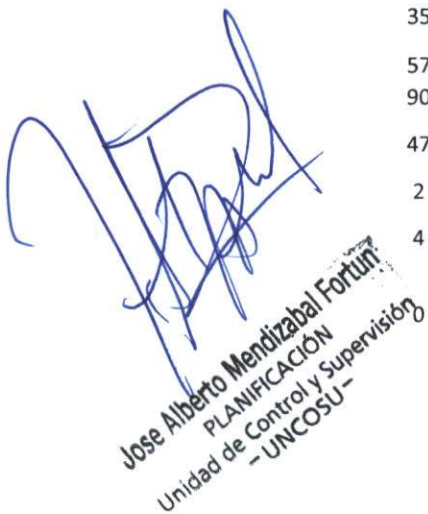 35
57
90
47
2
4
0
Jose Alberto Mendizabal Fortun
PLANIFICACIÓN
Unidad de Control y Supervisión
- UNCOSU -